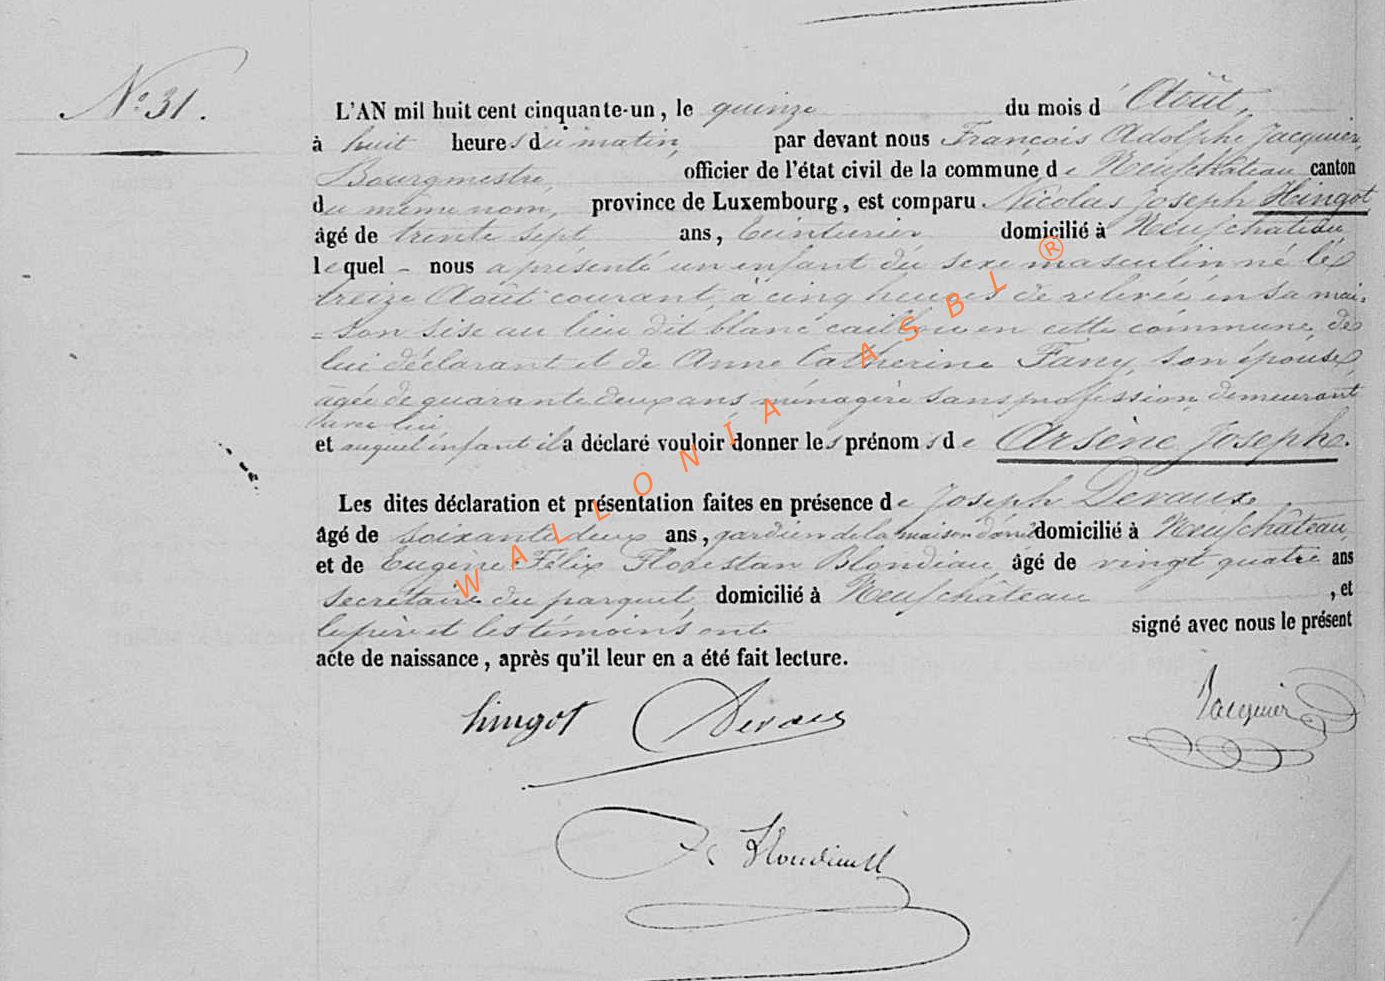 N° 31.
L'AN mil huit cent cinquante-un, le quinze du mois d' Août,
à huit heures du matin, par devant nous François Adolphe Jacquier,
Bourgmestre, officier de l'état civil de la commune de Neufchâteau canton
du même nom, province de Luxembourg, est comparu Nicolas Joseph Hingot
âgé de trente sept ans, teinturier domicilié à Neufchâteau
lequel nous a présenté un enfant du sexe masculin né le
treize Août courant, à cinq heures de relevée en sa mai-
=son sise au lieu dit blanc caillou en cette commune, de
lui déclarant et de Anne Catherine Fany, son épouse
âgée de quarante deux ans ménagère sans profession demeurant
avec lui
et auquel enfant il a déclaré vouloir donner les prénoms de Arsène Joseph.
Les dites déclaration et présentation faites en présence de Joseph Devaux
âgé de soixante deux ans, gardien de la maison domicilié à Neufchâteau
et de Eugène Félix Florestan Blondiau, âgé de vingt quatre ans
secrétaire du parquet, domicilié à Neufchâteau, et
le père et les témoins ont signé avec nous le présent
acte de naissance, après qu'il leur en a été fait lecture.
hingot Devaux Jacquier
WALLONIA ASBL ®